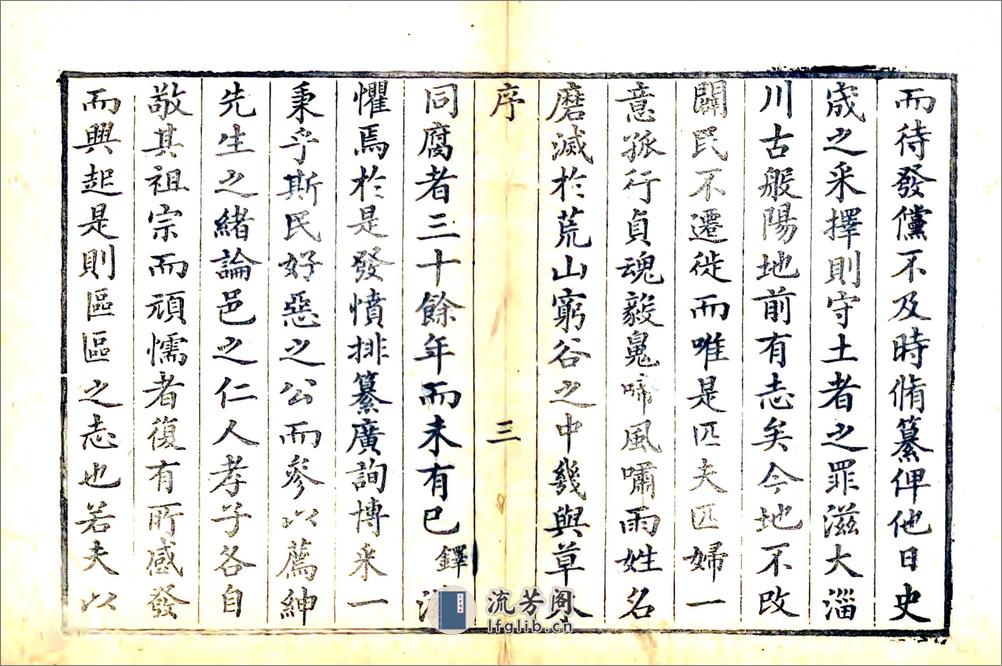 而待發儻不及時脩纂俾他日史
宬之采擇則守土者之罪滋大淄
川古般陽地前有志矣今地不改
闢民不遷徙而唯是匹夫匹婦一
意孤行貞魂毅鬼啼風嘯雨姓名
磨滅於荒山窮谷之中幾與草木
序 三
同腐者三十餘年而未有已鐸
懼焉於是發憤排纂廣詢博采一
秉乎斯民好惡之公而參以薦紳
先生之緒論邑之仁人孝子各自
敬其祖宗而頑懦者復有所感發
而興起是則區區之志也若夫以
流芳阁
lfglib.cn